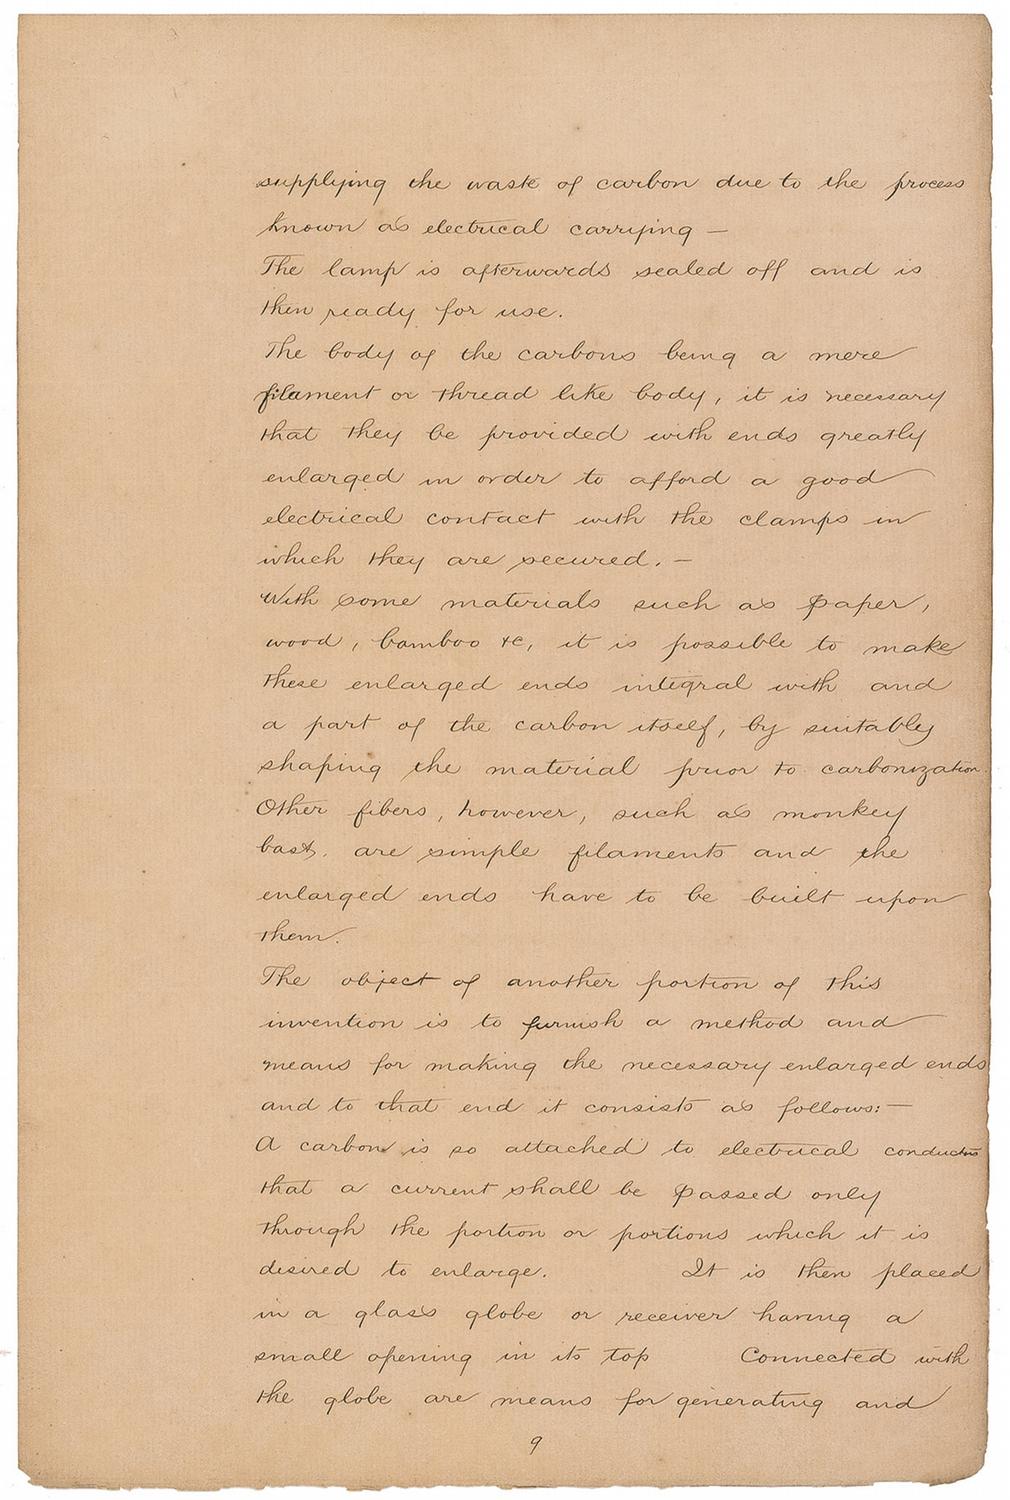 supplying the waste of carbon due to the process
known as electrical carrying —
The lamp is afterwards sealed off and is
then ready for use.
The body of the carbons being a mere
filament or thread like body, it is necessary
that they be provided with ends greatly
enlarged in order to afford a good
electrical contact with the clamps in
which they are secured. —
With some materials such as paper,
wood, bamboo &c, it is possible to make
these enlarged ends integral with and
a part of the carbon itself, by suitably
shaping the material prior to carbonization.
Other fibers, however, such as monkey
bast. are simple filaments and the
enlarged ends have to be built upon
them.
The object of another portion of this
invention is to furnish a method and
means for making the necessary enlarged ends
and to that end it consists as follows: —
A carbon is so attached to electrical conductors
that a current shall be passed only
through the portion or portions which it is
desired to enlarge. It is then placed
in a glass globe or receiver having a
small opening in its top Connected with
the globe are means for generating and
9